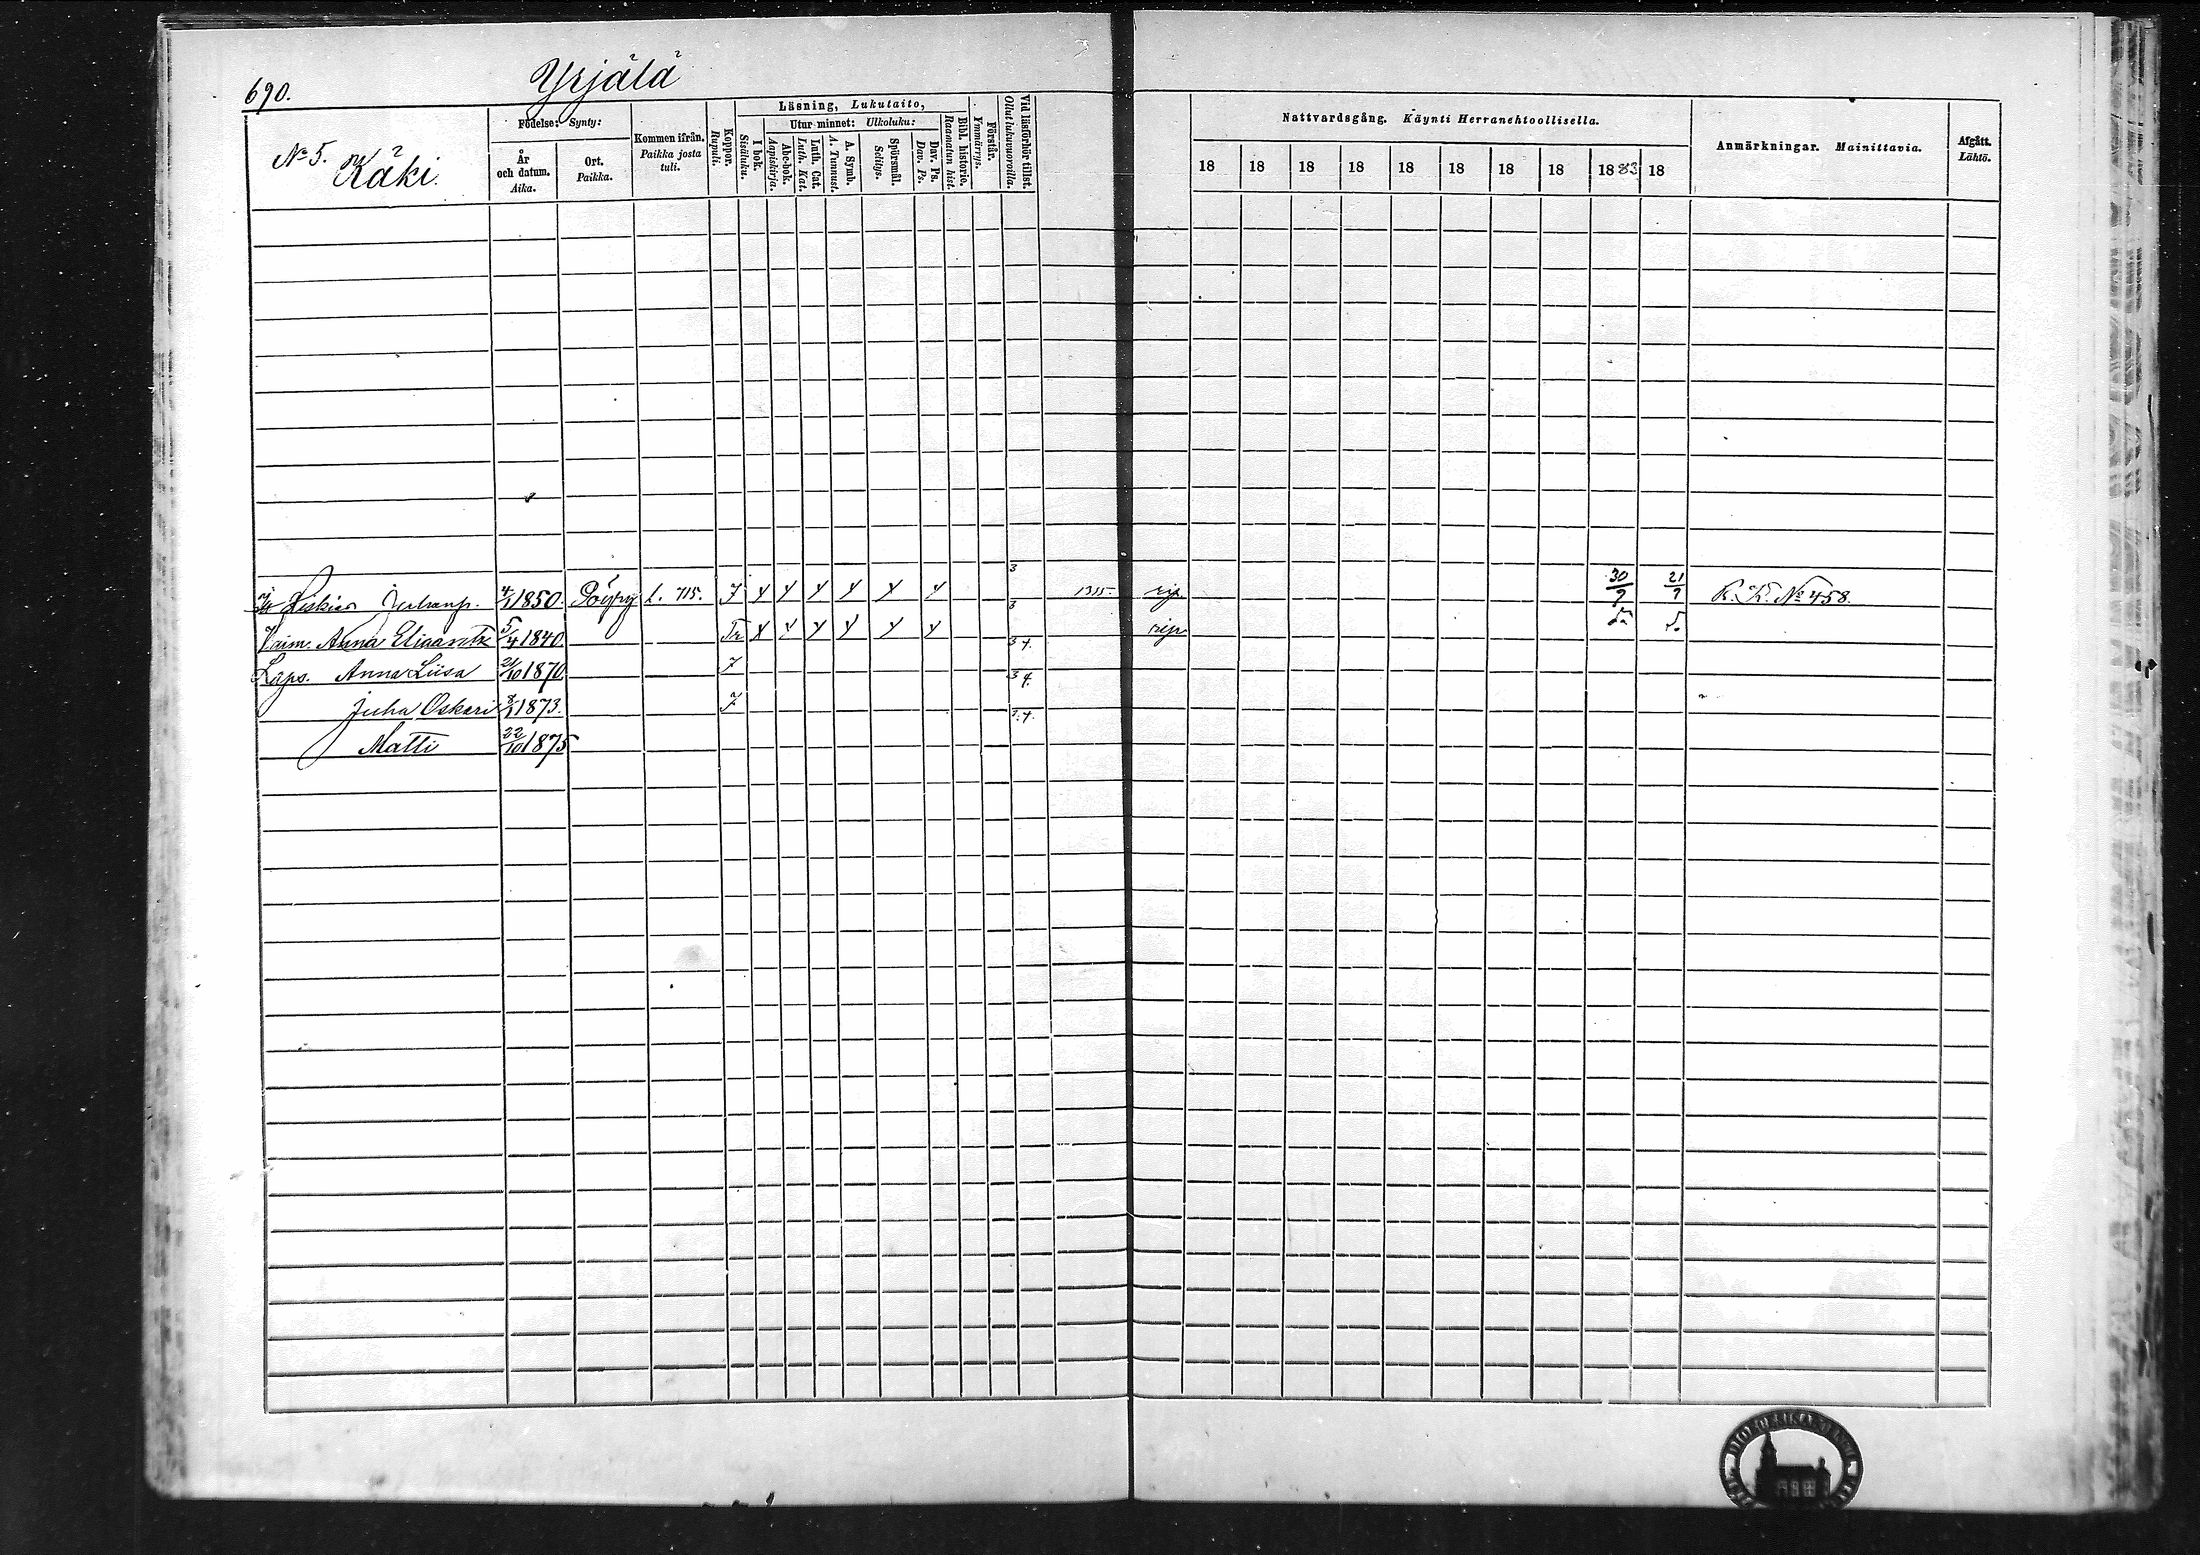 690.
Yrjälä
No 5. Käki.
Födelse: Synty:
År och datum. Aika.
Ort. Paikka.
Kommen ifrån. Paikka josta tuli.
Koppor. Rupuli.
Läsning, Lukutaito,
I bok. Sisäluku.
Utur minnet: Ulkoluku:
Abc-bok. Aapiskirja.
Luth. Cat. Luth. Kat.
A. Symb. A. Tunnust.
Spörsmål. Selitys.
Dav. Ps. Dav. Ps.
Bibl. historie. Raamatun hist.
Förstår. Ymmärrys.
Vid läsförhör tillst. Ollut lukuvuorolla.
Nattvardsgång. Käynti Herranehtoollisella.
18 18 18 18 18 18 18 18 1883 18
Anmärkningar. Mainittavia.
Afgått. Lähtö.
1850. Pöyty l. 715. 3 1315. rip 30/9 21/9 R. K. No 458.
Vaim. Anna 5/4 1840. Tr 3 rip
Laps. Anna Liisa 21/10 1870. 3 4.
Juha Oskari 1873. 3 4.
Matti 22/10 1875